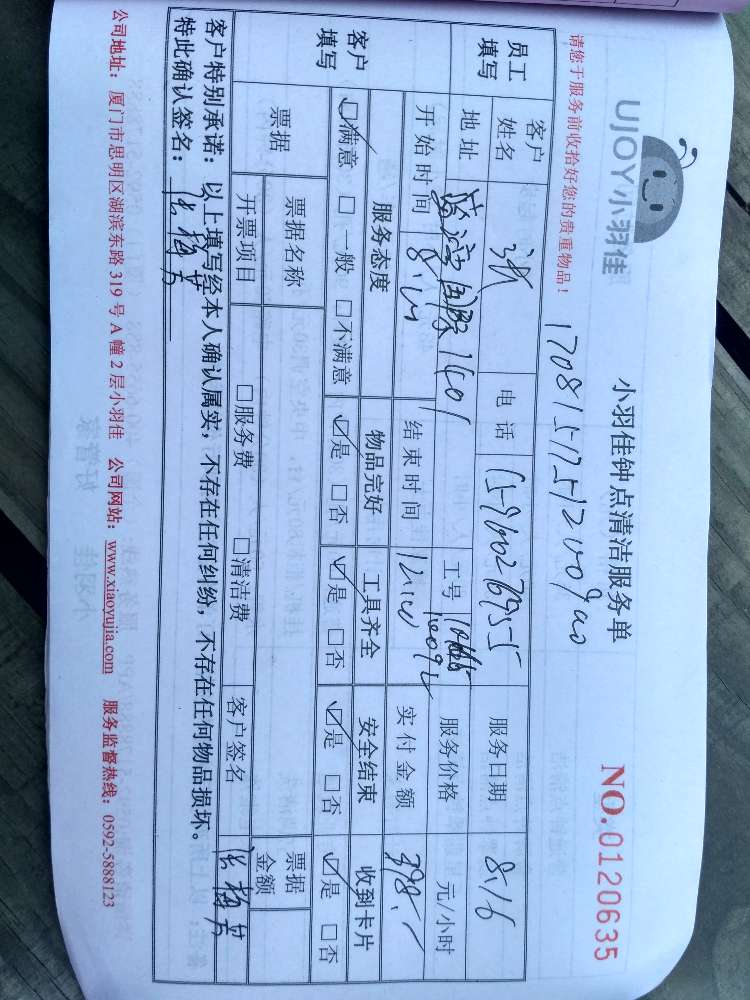 UJOY小羽佳
小羽佳钟点清洁服务单
NO.0120635
请您于服务前收拾好您的贵重物品！
员工填写
客户姓名 张 电话 服务日期 8.16
地址 国际1401 工号 服务价格 元/小时
开始时间 结束时间 实付金额 398.
客户填写
服务态度 物品完好 工具齐全 安全结束 收到卡片
☑满意 □一般 □不满意 ☑是 □否 ☑是 □否 ☑是 □否 ☑是 □否
票据 票据名称 票据金额
开票项目 □服务费 □清洁费 客户签名 张梅芳
客户特别承诺：以上填写经本人确认属实，不存在任何纠纷，不存在任何物品损坏。
特此确认签名：张梅芳
公司地址：厦门市思明区湖滨东路 319 号 A 幢 2 层小羽佳 公司网站：www.xiaoyujia.com 服务监督热线：0592-5888123